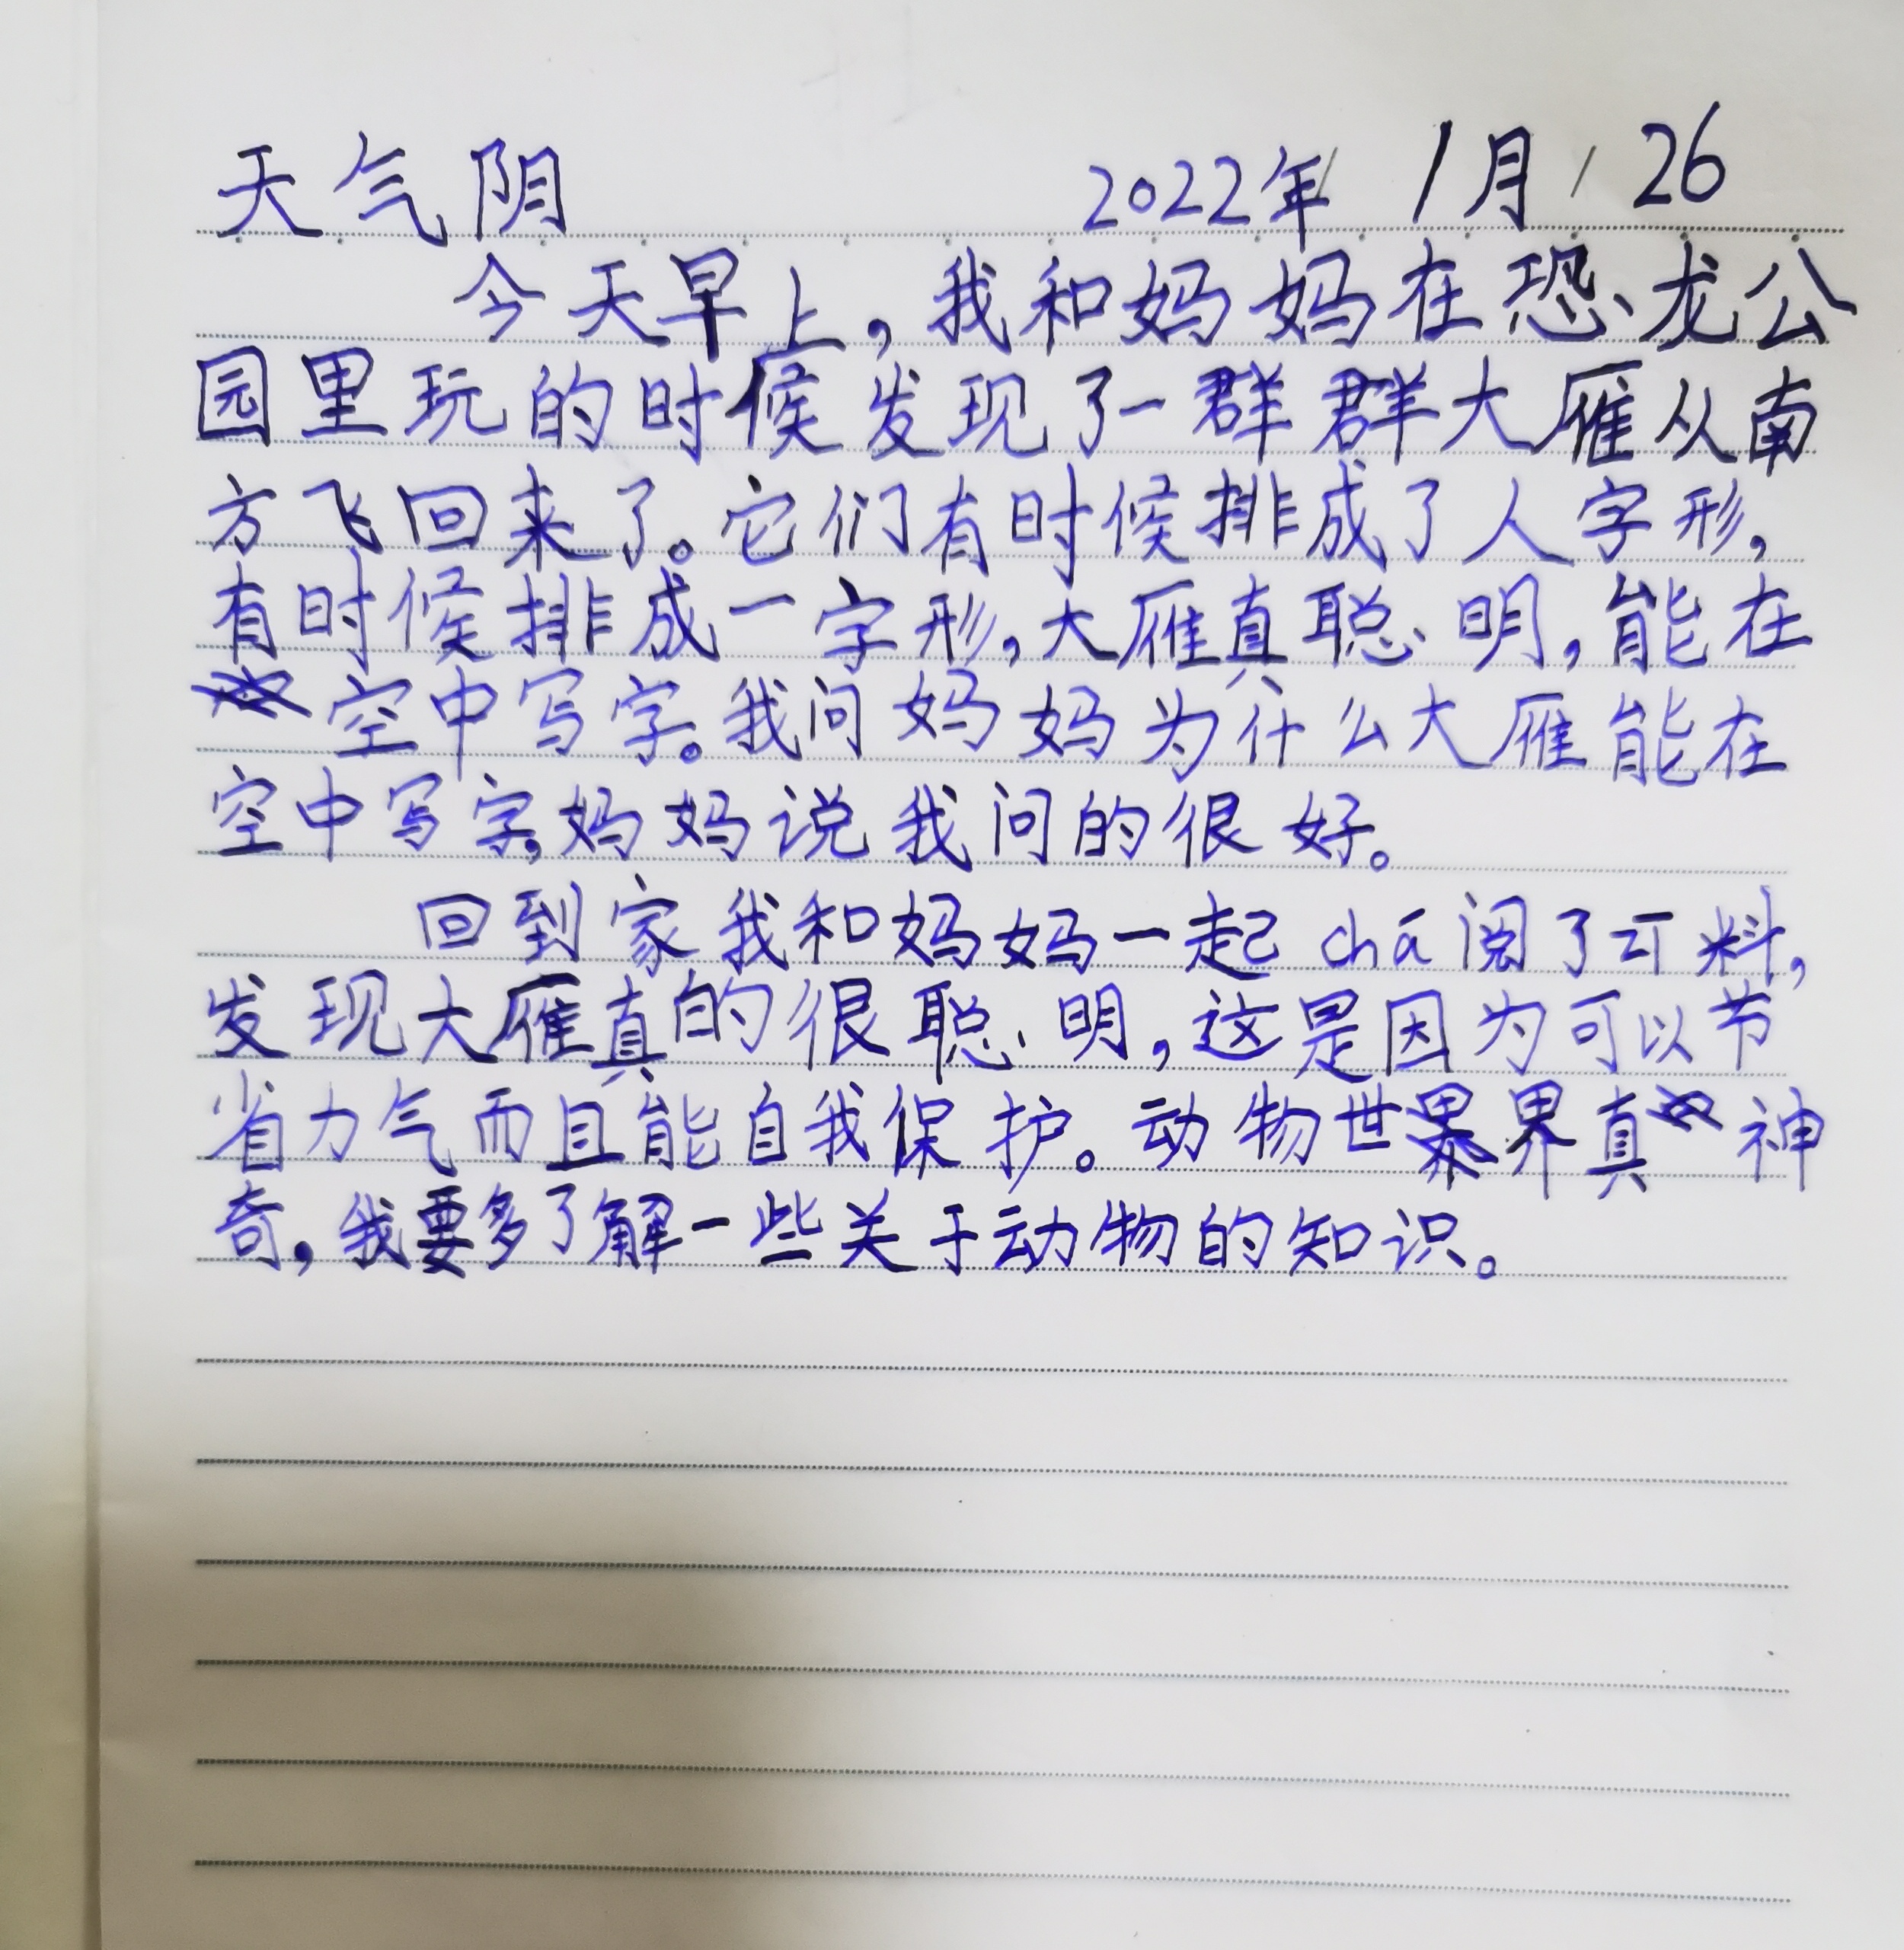 天气阴 2022年 1月 26
今天早上，我和妈妈在恐龙公
园里玩的时候发现了一群群大雁从南
方飞回来了。它们有时候排成了人字形，
有时候排成一字形，大雁真聪明，能在
空中写字。我问妈妈为什么大雁能在
空中写字，妈妈说我问的很好。
回到家我和妈妈一起chá阅了 料，
发现大雁真的很聪明，这是因为可以节
省力气而且能自我保护。动物世界真神
奇，我要多了解一些关于动物的知识。